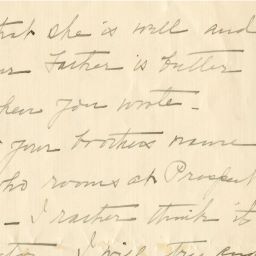 that she is well and
Father is better
when you wrote -
your brothers name
who rooms at Prospect
- I rather think it
I will try and